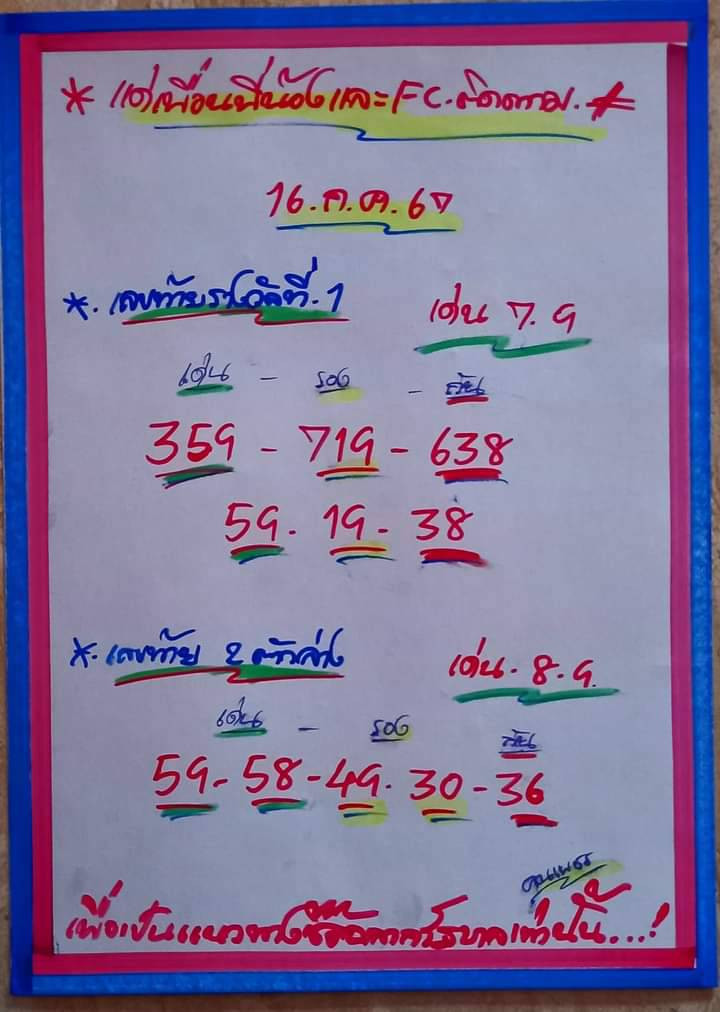 * แด่เพื่อนพี่น้องและ FC.ติดตาม. *
16.ก.ค.67
*. เลขท้ายรางวัลที่.1
เด่น 7.9
เด่น - รอง - กัน
359 - 719 - 638
59. 19. 38
*. เลขท้าย 2 ตัวล่าง
เด่น. 8.9.
เด่น - รอง กัน
59-58-49. 30-36
เพื่อเป็นแนวทางซื้อสลากรัฐบาลเท่านั้น...!